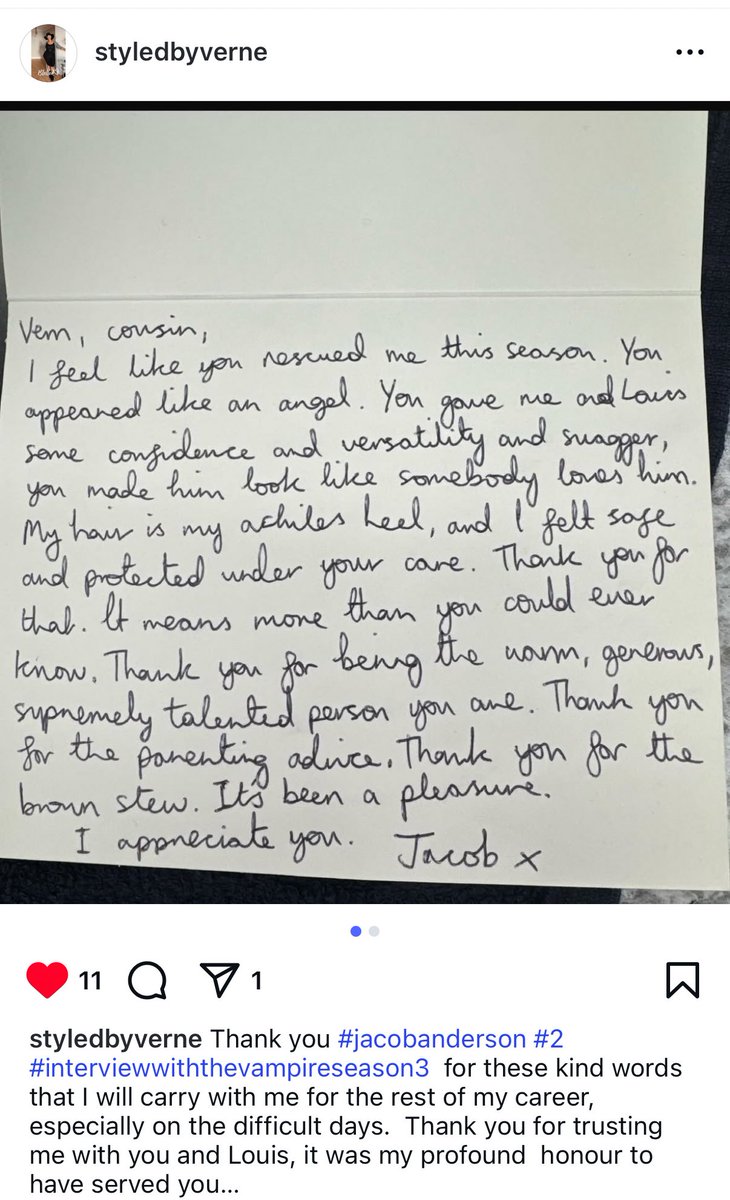 styledbyverne
Vern, cousin,
I feel like you rescued me this season. You
appeared like an angel. You gave me and Louis
some confidence and versatility and swagger,
you made him look like somebody loves him.
My hair is my achiles heel, and I felt safe
and protected under your care. Thank you for
that. It means more than you could ever
know. Thank you for being the warm, generous,
supremely talented person you are. Thank you
for the parenting advice. Thank you for the
brown stew. It's been a pleasure.
I appreciate you. Jacob x
11 1
styledbyverne Thank you #jacobanderson #2
#interviewwiththevampireseason3 for these kind words
that I will carry with me for the rest of my career,
especially on the difficult days. Thank you for trusting
me with you and Louis, it was my profound honour to
have served you...